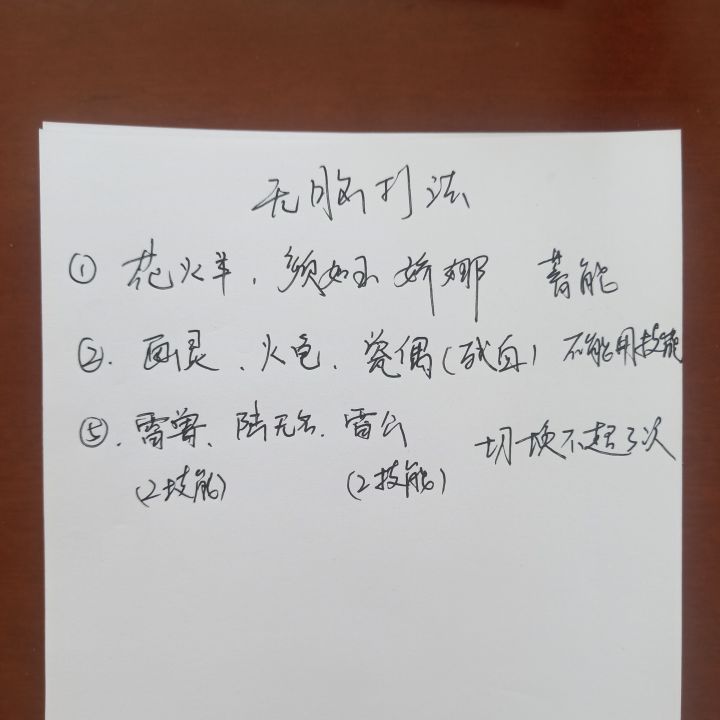 无脑打法
① 花火羊、颜如玉 娇娜 蓄能
②. 画灵、火龟、瓷偶(残血) 不能用技能
⑤. 雷兽、陆无名. 雷公 切换不超3次
(2技能) (2技能)